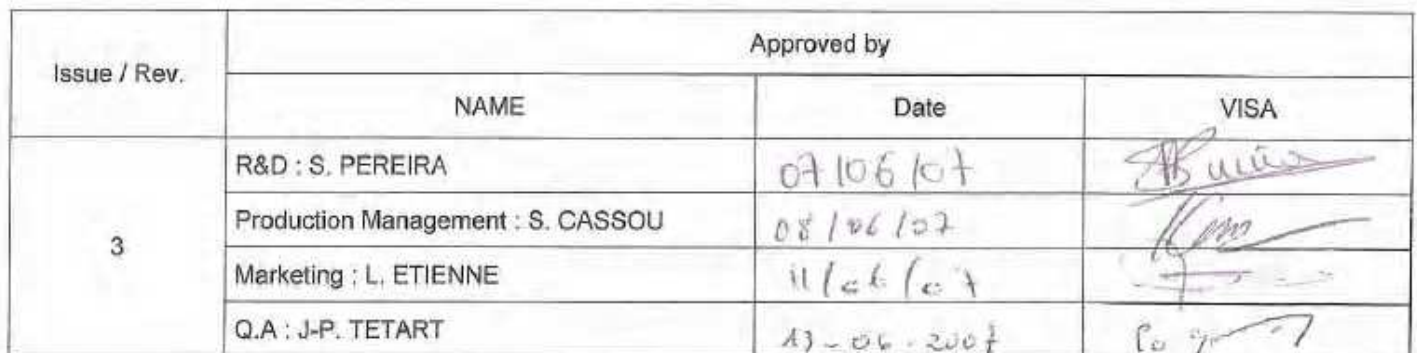 Issue / Rev.
Approved by
NAME
Date
VISA
3
R&D : S. PEREIRA
07/06/07
Production Management : S. CASSOU
08/06/07
Marketing : L. ETIENNE
11/06/07
Q.A : J-P. TETART
13-06-2007